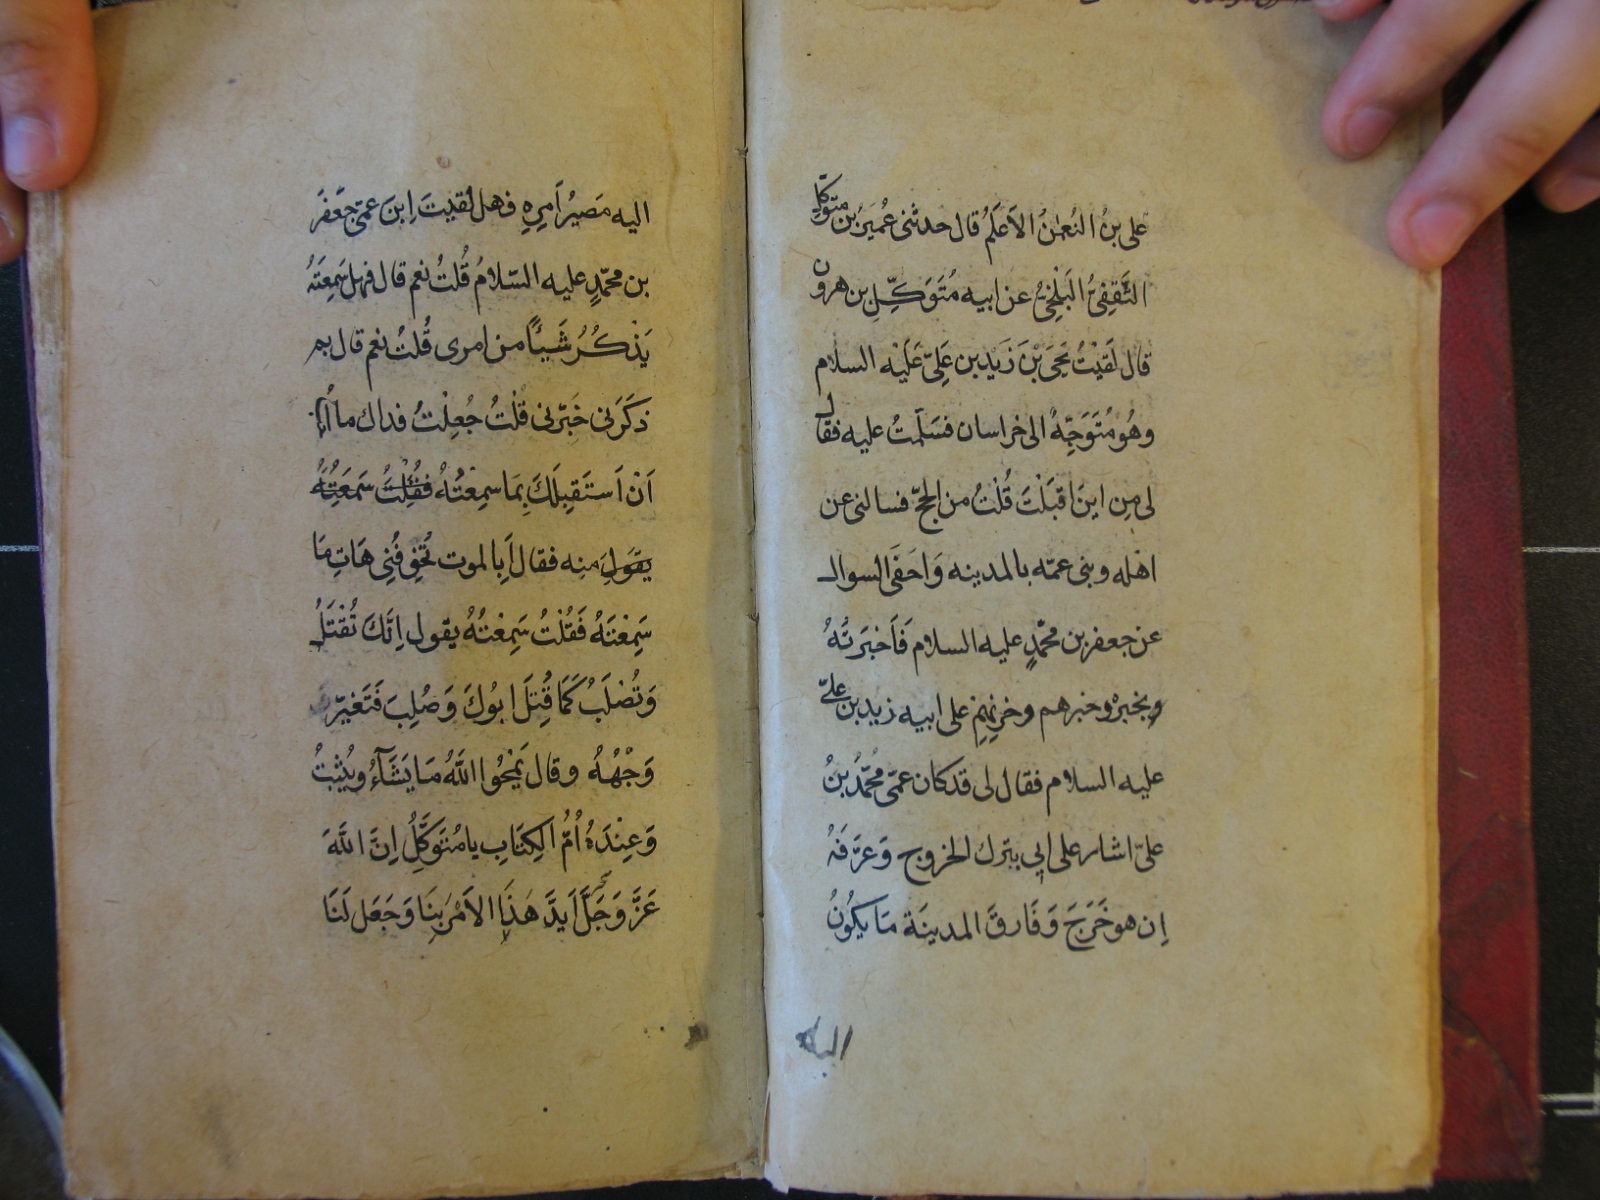 على بنُ النُعمٰنُ الاَعلَمُ قال حدثنى عُمَيرُ بنُ متوكّلٍ
الثَّقِفِىُّ البَلْخِىُّ عن ابيه مُتَوَكِّلِ بن هرون
قال لَقيْتُ يَحيَى بْنَ زَيدِ بن عَلِىّ عَلَيْه السلام
وهُو مُتَوَجّهٌ الى خراسان فسَلَمتُ عليه فقال
لى مِن اينَ اقبَلْتَ قُلْتُ من الحجّ فسالنى عن
اهله وبنى عمّه بالمدينه وَاحَفَى السوال
عن جعفر بن محمّدٍ عليه السلام فَاَخبَرتُهُ
وبخبره وخبرهم وحزنِهِم على ابيه زيد بن علىّ
عليه السلام فقال لى قد كان عمّى محمّدُ بنُ
علىّ اشار على ابى بترك الخروج وَعرّفَهُ
اِن هو خَرَجَ وَفَارقَ المدينَة مَا يكُونُ
اليه
اليه مَصيرُ اَمرِهِ فهل لقيتَ اِبنَ عمّى جعْفَرَ
بن محمّدٍ عليه السّلامُ قُلتُ نعم قال فهل سَمِعتَهُ
يَذْكُرُ شَيئاً من امرى قُلتُ نعم قال بم
ذكَرَنى خَبّرنى قُلْتُ جُعِلْتُ فداك ما اُحِبُّ
اَنْ اَستَقبِلَكَ بِمَا سمِعْتُهُ فَقُلْتُ سَمَعْتُهُ
يقولِ منِه فقال اَبِالموت تُخَوِّفُنِى هَاتِ مَا
سَمِعْتَهُ فَقُلْتُ سَمِعْتُهُ يقول اِنَّكَ تُقْتَلُ
وَتُصْلَبُ كَمَا قُتِلَ ابُوكَ وَصُلِبَ فَتَغَيّرَ
وَجْهُهُ وقال يَمْحُوا اللّٰهُ مَا يَشَآءُ ويُثْبِتُ
وَعِنْدَهُ اُمُّ الكِتَابِ يا مُتَوَكّلُ اِنَّ اللَّهَ
عَزَّ وَجَلَّ اَيدَّ هَذَا الاَمْرَ بِنَا وَجَعَل لَنَا